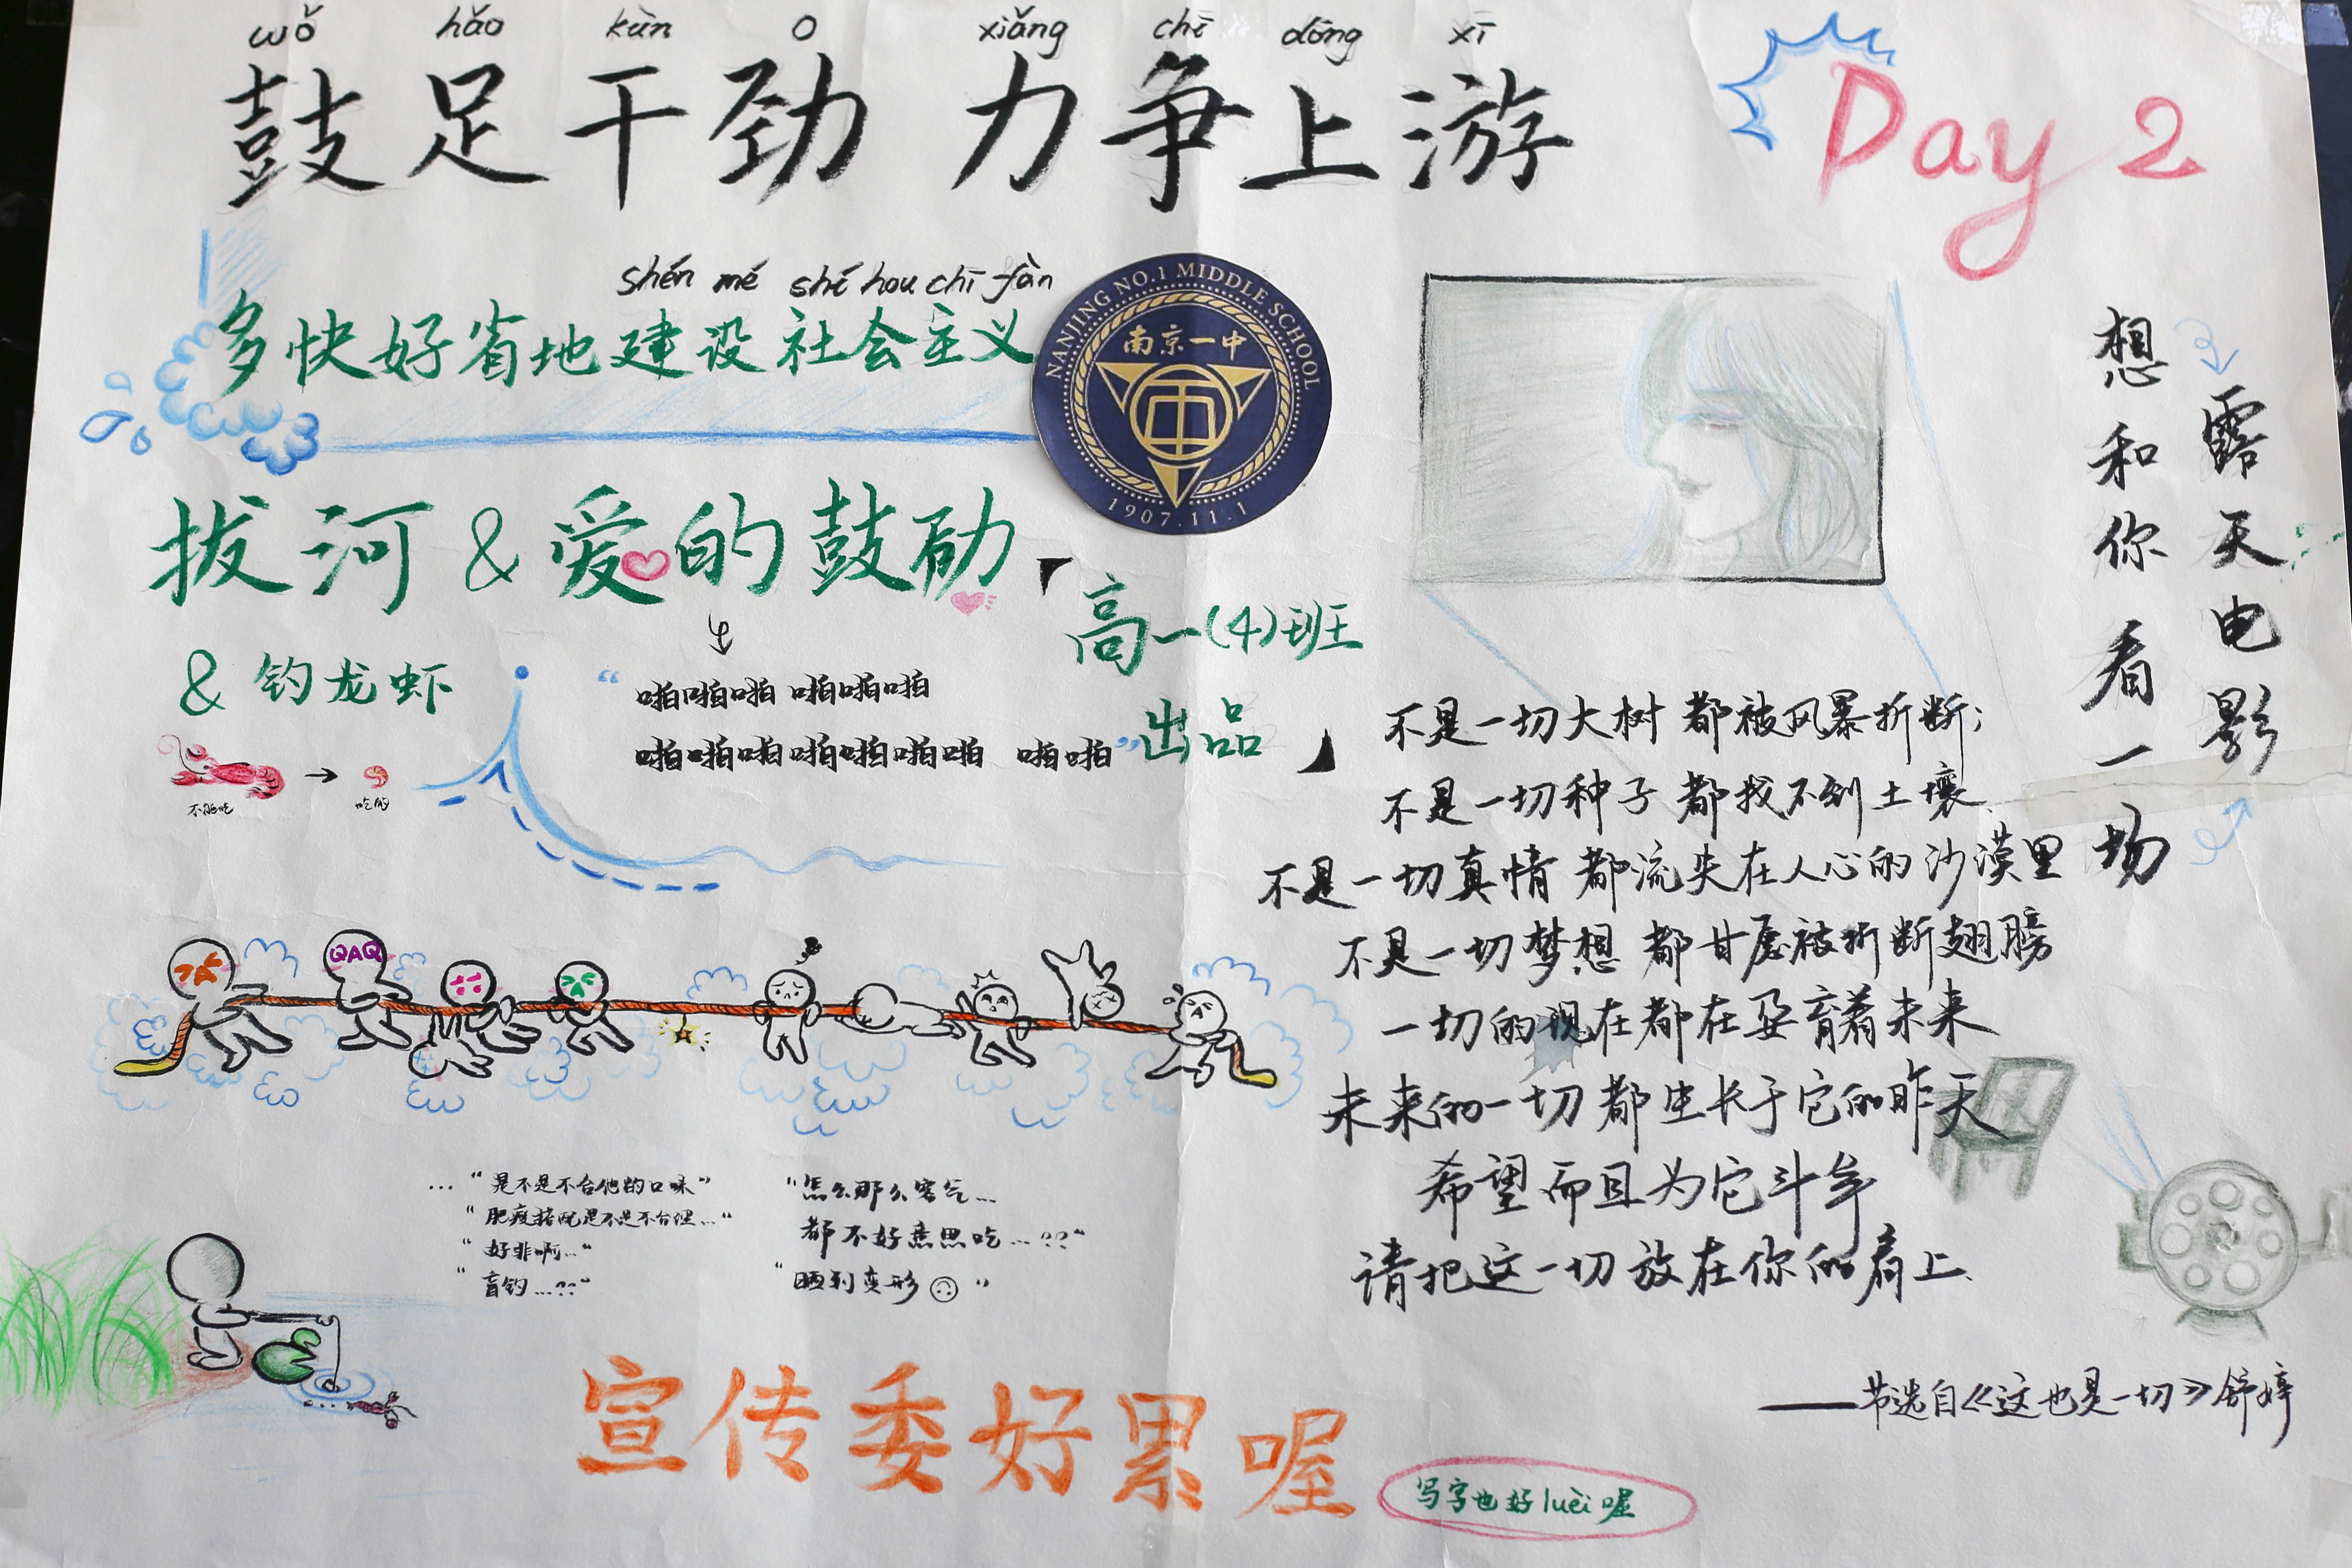 wǒ hǎo kùn o xiǎng chī dōng xī
鼓足干劲 力争上游
Day 2
shén mé shí hou chī fàn
多快好省地建设社会主义
NANJING NO.1 MIDDLE SCHOOL
南京一中
1907.11.1
拔河 & 爱的鼓励
& 钓龙虾
“啪啪啪 啪啪啪
啪啪啪啪啪啪啪 啪啪”
「高一(4)班
出品」
不能吃 → 吃的
QAQ
…“是不是不合他的口味”
“肥瘦搭配是不是不合理…”
“好非啊…”
“盲钓…??”
“怎么那么客气…
都不好意思吃…??”
“晒到变形 ”
宣传委好累喔
写字也好luèi喔
想和你看一场
露天电影
不是一切大树 都被风暴折断;
不是一切种子 都找不到土壤、
不是一切真情 都流失在人心的沙漠里
不是一切梦想 都甘愿被折断翅膀
一切的现在都在孕育着未来
未来的一切都生长于它的昨天
希望 而且为它斗争
请把这一切放在你的肩上、
——节选自《这也是一切》舒婷